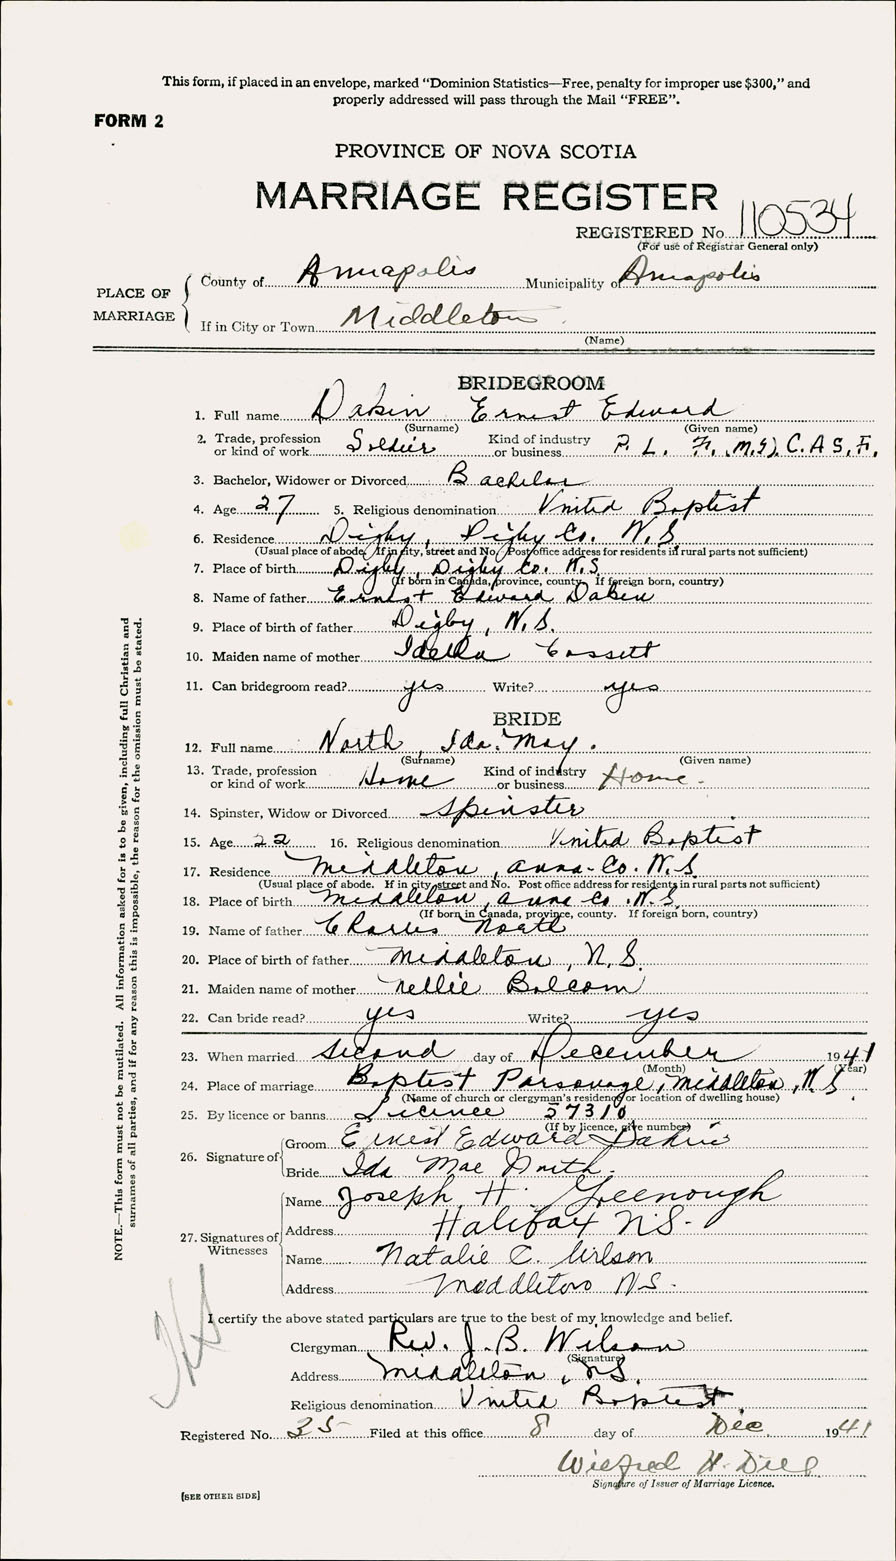 This form, if placed in an envelope, marked “Dominion Statistics—Free, penalty for improper use $300,” and
properly addressed will pass through the Mail “FREE”.
FORM 2
PROVINCE OF NOVA SCOTIA
MARRIAGE REGISTER
REGISTERED No. 110534
(For use of Registrar General only)
PLACE OF MARRIAGE
County of Annapolis Municipality of Annapolis
If in City or Town Middleton
(Name)
BRIDEGROOM
1. Full name Dakin Ernest Edward
(Surname) (Given name)
2. Trade, profession or kind of work Soldier Kind of industry or business P. L. F. (M.G). C. A. S. F.
3. Bachelor, Widower or Divorced Bachelor
4. Age 27 5. Religious denomination United Baptist
6. Residence Digby, Digby Co. N.S.
(Usual place of abode. If in city, street and No. Post office address for residents in rural parts not sufficient)
7. Place of birth Digby, Digby Co. N.S.
(If born in Canada, province, county. If foreign born, country)
8. Name of father Ernest Edward Dakin
9. Place of birth of father Digby, N.S.
10. Maiden name of mother Idella Cossett
11. Can bridegroom read? yes Write? yes
BRIDE
12. Full name North, Ida May.
(Surname) (Given name)
13. Trade, profession or kind of work Home Kind of industry or business Home.
14. Spinster, Widow or Divorced Spinster
15. Age 22 16. Religious denomination United Baptist
17. Residence Middleton, Anna. Co. N.S.
(Usual place of abode. If in city, street and No. Post office address for residents in rural parts not sufficient)
18. Place of birth Middleton, Anna Co. N.S.
(If born in Canada, province, county. If foreign born, country)
19. Name of father Charles North
20. Place of birth of father Middleton, N.S.
21. Maiden name of mother Nellie Balcom
22. Can bride read? yes Write? yes
23. When married Second day of December 1941
(Month) (Year)
24. Place of marriage Baptist Parsonage, Middleton, N.S.
(Name of church or clergyman's residence or location of dwelling house)
25. By licence or banns Licence 57310
(If by licence, give number)
26. Signature of
Groom Ernest Edward Dakin
Bride Ida Mae North.
27. Signatures of Witnesses
Name Joseph H. Greenough
Address Halifax N.S.
Name Natalie C. Wilson
Address Middleton N.S.
I certify the above stated particulars are true to the best of my knowledge and belief.
Clergyman Rev. J. B. Wilson
(Signature)
Address Middleton, N.S.
Religious denomination United Baptist
Registered No. 35 Filed at this office 8 day of Dec 1941
Wilfred H. Dill
Signature of Issuer of Marriage Licence.
[SEE OTHER SIDE]
NOTE.—This form must not be mutilated. All information asked for is to be given, including full Christian and
surnames of all parties, and if for any reason this is impossible, the reason for the omission must be stated.